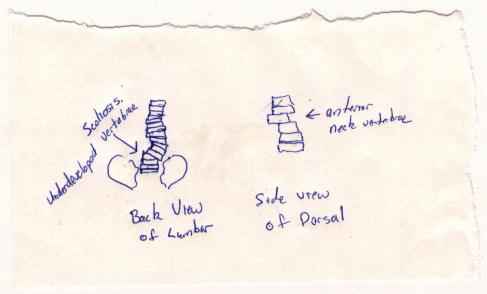 Scoliosis.
Underdeveloped vertebrae
Back View
of Lumbar
anterior
neck vertebrae
Side view
of Dorsal